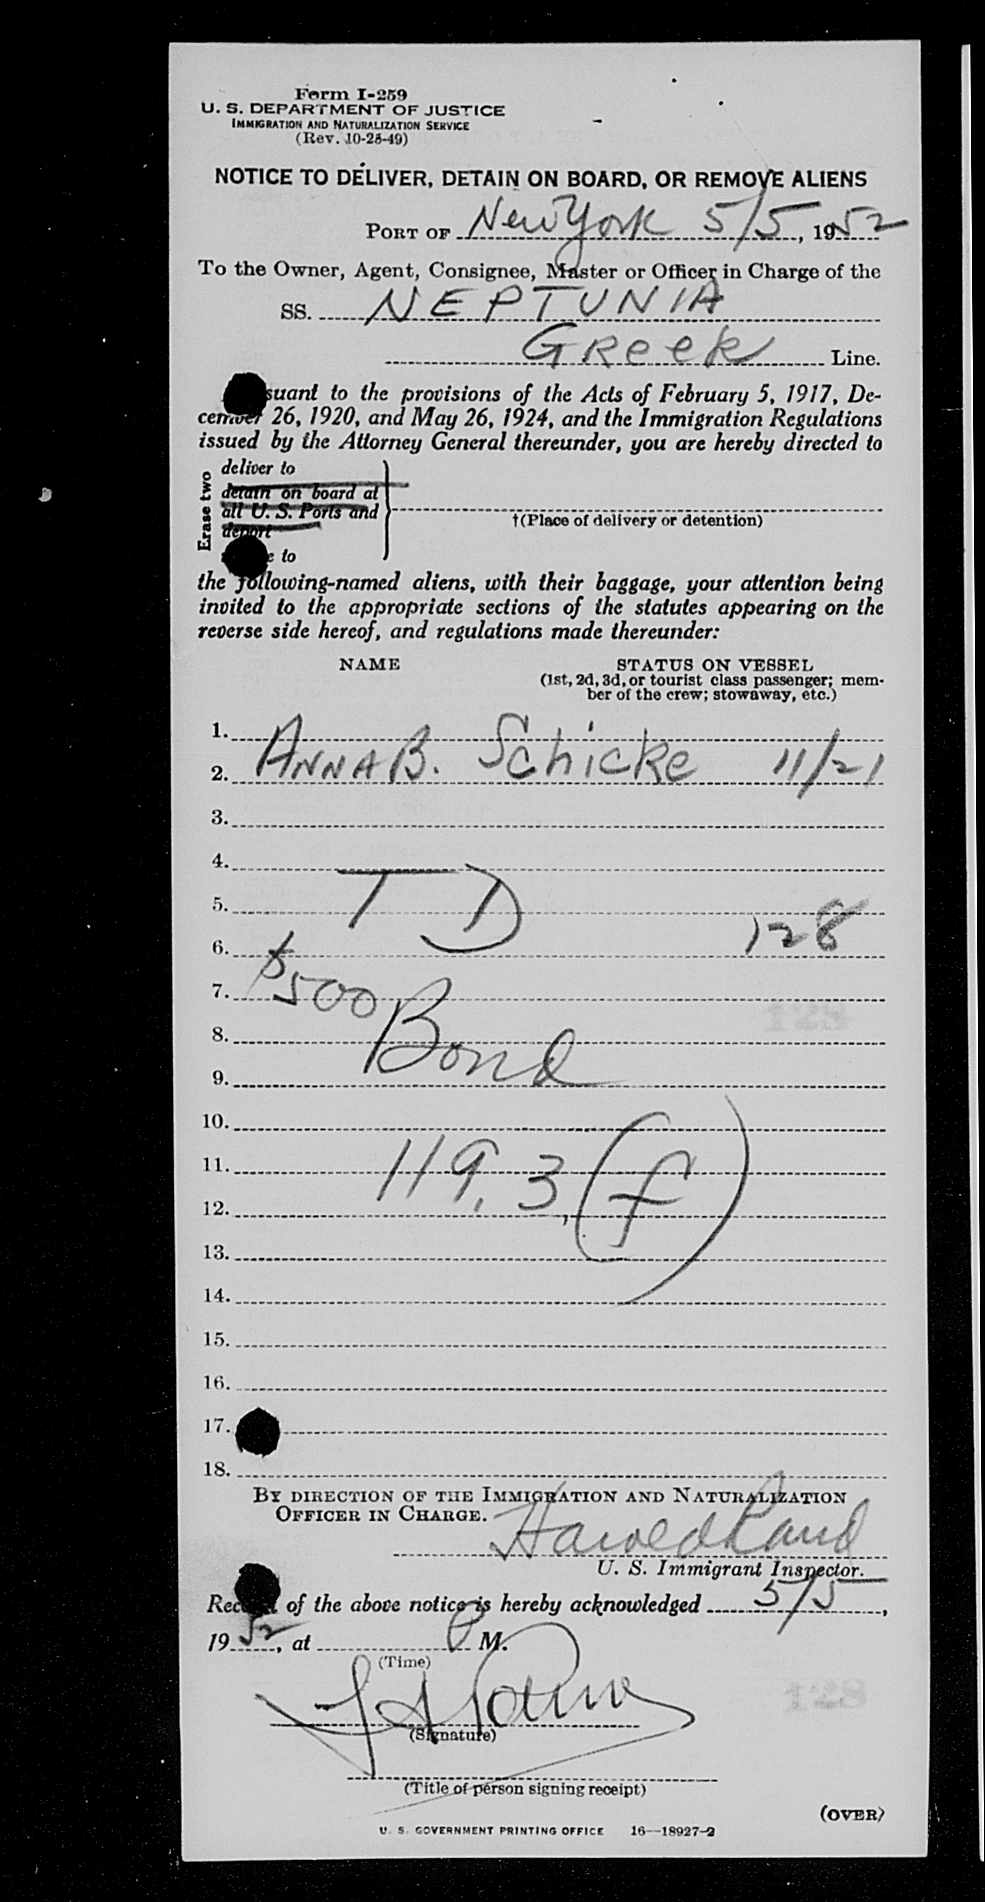 Form I-259
U. S. DEPARTMENT OF JUSTICE
IMMIGRATION AND NATURALIZATION SERVICE
(Rev. 10-25-49)
NOTICE TO DELIVER, DETAIN ON BOARD, OR REMOVE ALIENS
PORT OF New York 5/5, 1952
To the Owner, Agent, Consignee, Master or Officer in Charge of the
SS. NEPTUNIA
Greek Line.
suant to the provisions of the Acts of February 5, 1917, De-
cember 26, 1920, and May 26, 1924, and the Immigration Regulations
issued by the Attorney General thereunder, you are hereby directed to
Erase two
deliver to
detain on board at
all U. S. Ports and
deport
e to
†(Place of delivery or detention)
the following-named aliens, with their baggage, your attention being
invited to the appropriate sections of the statutes appearing on the
reverse side hereof, and regulations made thereunder:
NAME STATUS ON VESSEL
(1st, 2d, 3d, or tourist class passenger; mem-
ber of the crew; stowaway, etc.)
1.
2. ANNA B. Schicke 11/21
3.
4.
5. T D 128
6.
7. $500
128
8. Bond
9.
10.
11. 119.3,(f)
12.
13.
14.
15.
16.
17.
18.
BY DIRECTION OF THE IMMIGRATION AND NATURALIZATION
OFFICER IN CHARGE.
Harold Rand
U. S. Immigrant Inspector.
Rec of the above notice is hereby acknowledged 5/5,
1952, at P M.
(Time)
128
(Signature)
(Title of person signing receipt)
(OVER)
U. S. GOVERNMENT PRINTING OFFICE 16—18927-2